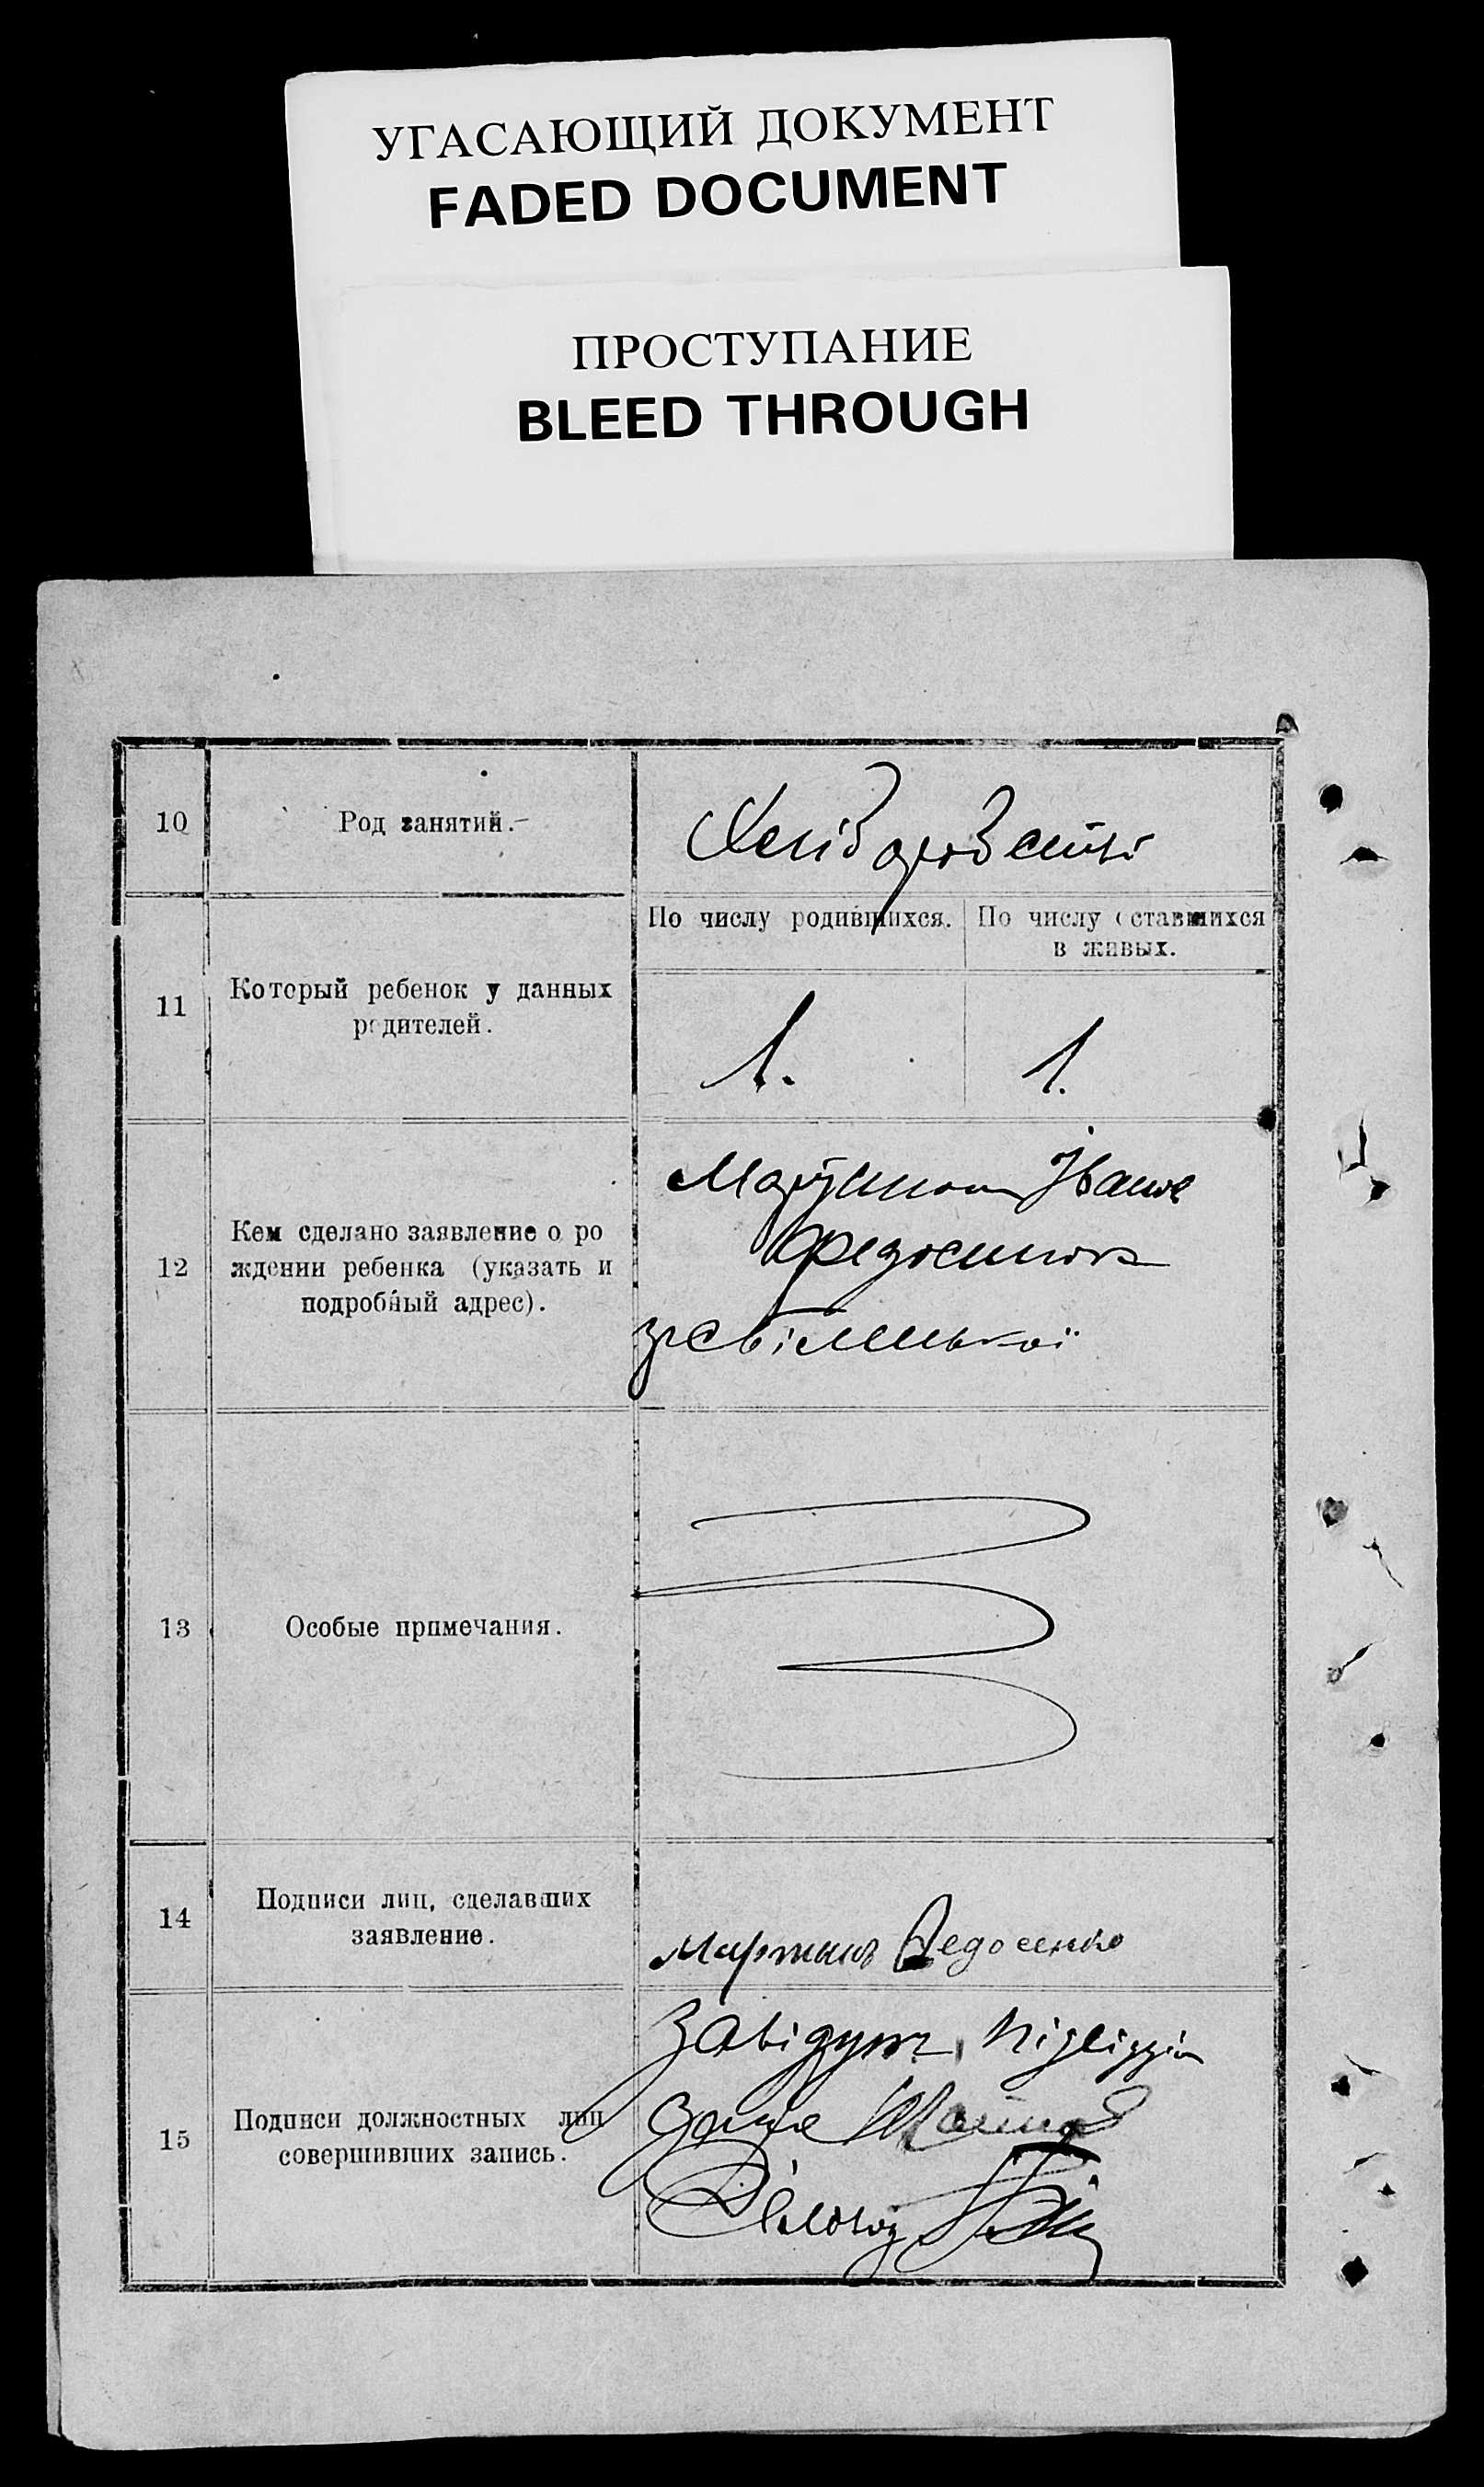 УГАСАЮЩИЙ ДОКУМЕНТ
FADED DOCUMENT
ПРОСТУПАНИЕ
BLEED THROUGH
10
Род занятий.
11
Который ребенок у данных
родителей.
По числу родившихся.
По числу оставшихся
в живых.
1.
1.
12
Кем сделано заявление о ро
ждении ребенка (указать и
подробный адрес).
13
Особые примечания.
14
Подписи лиц, сделавших
заявление.
Федосенко
15
Подписи должностных лиц
совершивших запись.
Завідуюч.
Діловод